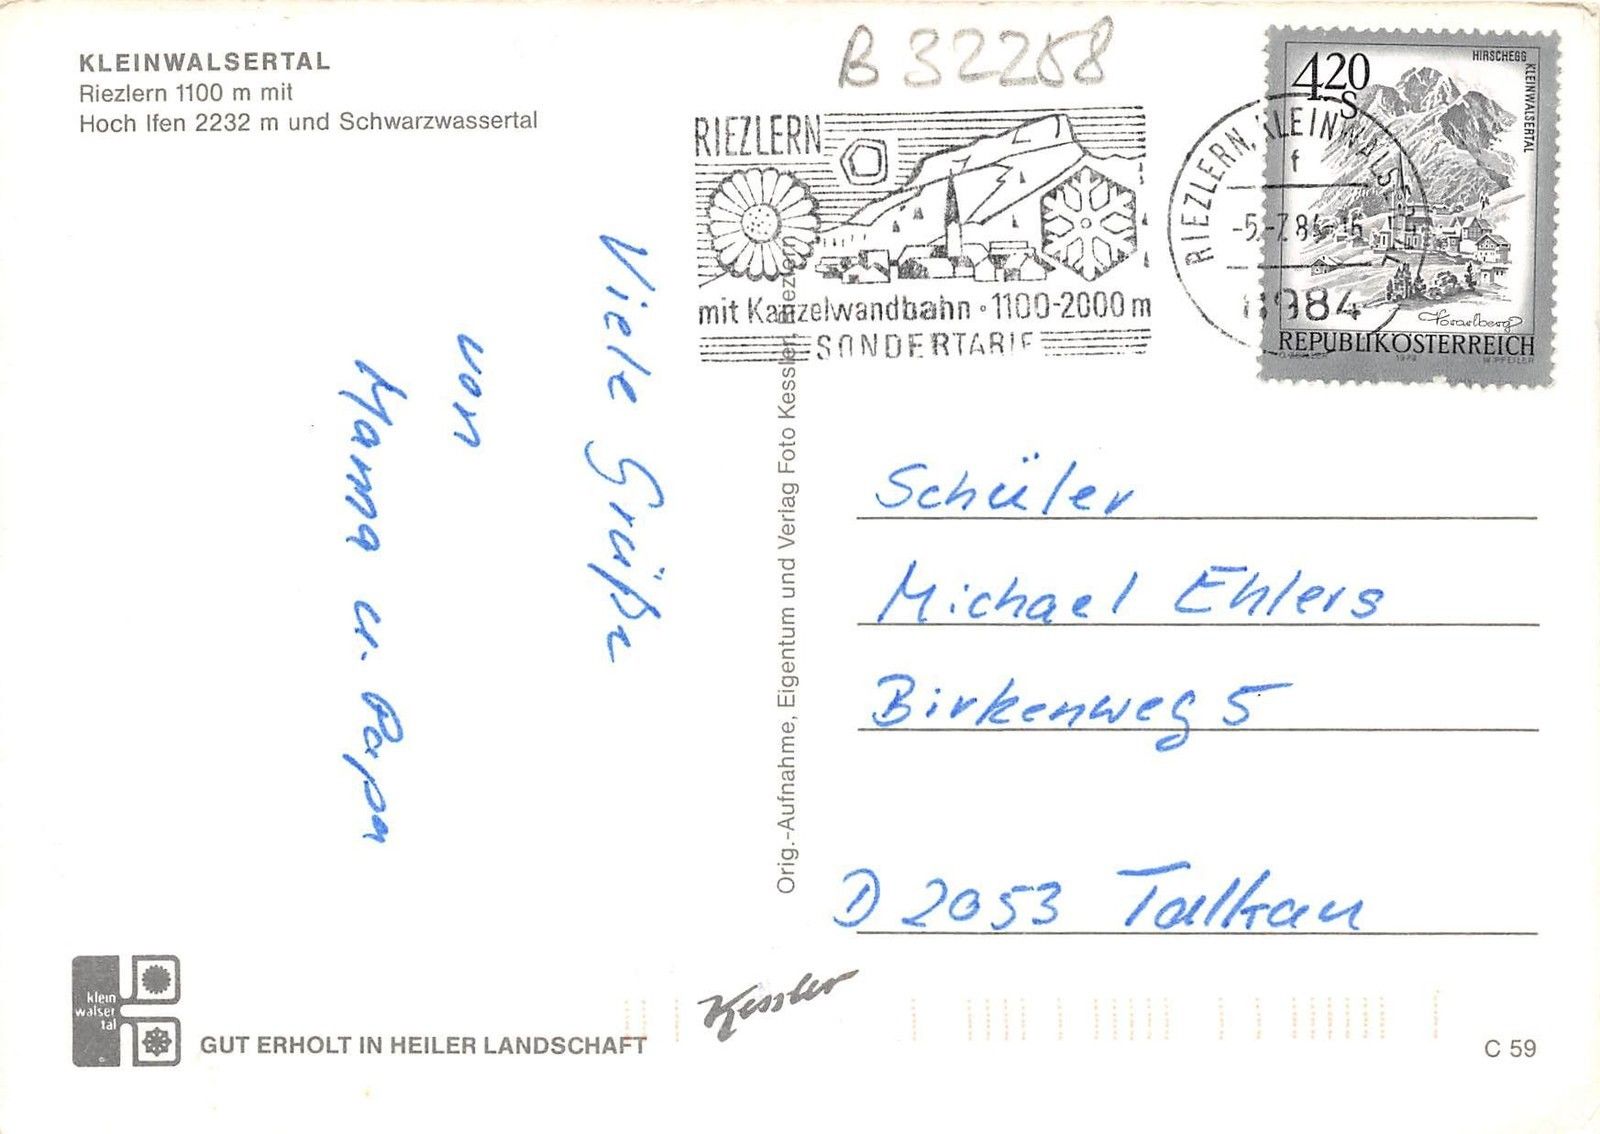 KLEINWALSERTAL
Riezlern 1100 m mit
Hoch Ifen 2232 m und Schwarzwassertal
B 32258
RIEZLERN
mit Kanzelwandbahn • 1100-2000 m
SONDERTARIF
RIEZLERN, KLEINWALSERTAL
f
-5.-7.84-16
984
4.20
S
HIRSCHEGG
KLEINWALSERTAL
Vorarlberg
REPUBLIK ÖSTERREICH
1979
W. PFEILER
Viele Grüße
von
Mama u. Papa
Orig.-Aufnahme, Eigentum und Verlag Foto Kessler, Riezlern
Schüler
Michael Ehlers
Birkenweg 5
D 2053 Talkau
klein
walser
tal
GUT ERHOLT IN HEILER LANDSCHAFT
Kessler
C 59